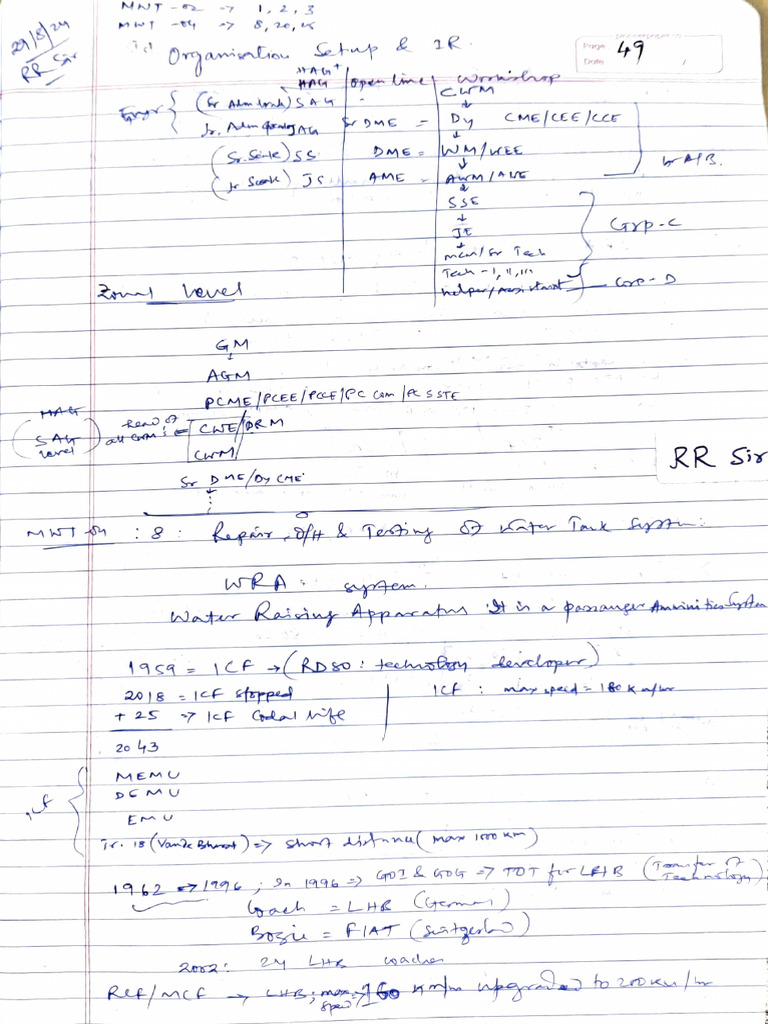 MWT-02 -> 1, 2, 3
MWT-04 => 8, 20,
29/8/24
RR Sir
Organisation Setup & IR.
Page 49
Date
HAG+
HAG open line workshop
CWM
SAG
JAG Sr DME = Dy CME/CEE/CCE
(Sr. Scale) SS DME = WM/WEE
(Jr Scale) JS AME = AWM/
Gr A/B.
SSE
JE
Grp-C
mcm/Sr Tech
Tech - I, II, III
helper/Assistant Grp-D
Zonal Level
GM
AGM
PCME/PCEE/PCCE/PC Com/PCSSTE
HAG
(SAG level) head of all CWM's = CWE/DRM
CWM
Sr DME/Dy CME
RR Sir
MWT-04 : 8 : Repair, O/H & Testing Of Water Tank System:
WRA: system.
Water Raising Apparatus It is a passanger Amminities System
1959 = ICF -> (RDSO: technology developer)
2018 = ICF stopped ICF : max speed = 180 Km/hr
+ 25 => ICF Codal life
2043
MEMU
DEMU
EMU
Tr. 18 (Vande Bharat) => short distance (max 1000 km)
1962 => 1996, In 1996 => GOI & GOG => TOT for LHB (Transfer of Technology)
Coach = LHB (German)
Bogie = FIAT
2002: 24 LHB coaches
RCF/MCF -> LHB; max speed 160 Km/hr upgraded to 200 Km/hr